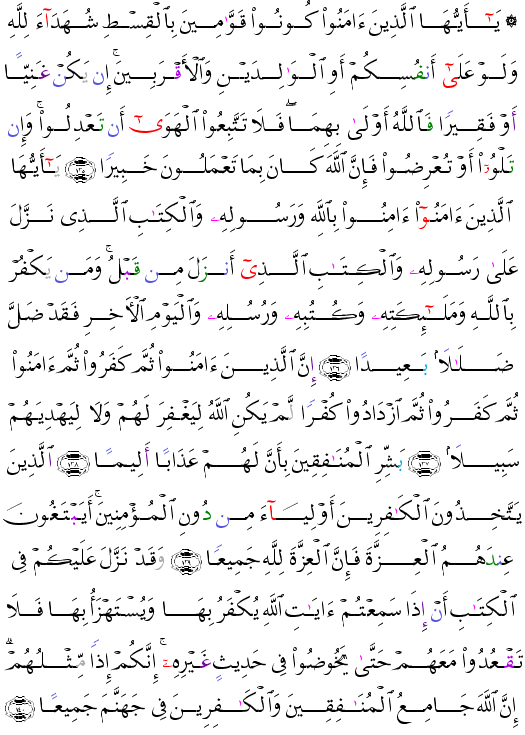 ۞ يَـٰٓأَيُّهَا ٱلَّذِينَ ءَامَنُوا۟ كُونُوا۟ قَوَّٰمِينَ بِٱلْقِسْطِ شُهَدَآءَ لِلَّهِ
وَلَوْ عَلَىٰٓ أَنفُسِكُمْ أَوِ ٱلْوَٰلِدَيْنِ وَٱلْأَقْرَبِينَ ۚ إِن يَكُنْ غَنِيًّا
أَوْ فَقِيرًا فَٱللَّهُ أَوْلَىٰ بِهِمَا ۖ فَلَا تَتَّبِعُوا۟ ٱلْهَوَىٰٓ أَن تَعْدِلُوا۟ ۚ وَإِن
تَلْوُۥٓا۟ أَوْ تُعْرِضُوا۟ فَإِنَّ ٱللَّهَ كَانَ بِمَا تَعْمَلُونَ خَبِيرًا ﴿١٣٥﴾ يَـٰٓأَيُّهَا
ٱلَّذِينَ ءَامَنُوٓا۟ ءَامِنُوا۟ بِٱللَّهِ وَرَسُولِهِۦ وَٱلْكِتَـٰبِ ٱلَّذِى نَزَّلَ
عَلَىٰ رَسُولِهِۦ وَٱلْكِتَـٰبِ ٱلَّذِىٓ أَنزَلَ مِن قَبْلُ ۚ وَمَن يَكْفُرْ
بِٱللَّهِ وَمَلَـٰٓئِكَتِهِۦ وَكُتُبِهِۦ وَرُسُلِهِۦ وَٱلْيَوْمِ ٱلْـَٔاخِرِ فَقَدْ ضَلَّ
ضَلَـٰلًۢا بَعِيدًا ﴿١٣٦﴾ إِنَّ ٱلَّذِينَ ءَامَنُوا۟ ثُمَّ كَفَرُوا۟ ثُمَّ ءَامَنُوا۟
ثُمَّ كَفَرُوا۟ ثُمَّ ٱزْدَادُوا۟ كُفْرًا لَّمْ يَكُنِ ٱللَّهُ لِيَغْفِرَ لَهُمْ وَلَا لِيَهْدِيَهُمْ
سَبِيلًۢا ﴿١٣٧﴾ بَشِّرِ ٱلْمُنَـٰفِقِينَ بِأَنَّ لَهُمْ عَذَابًا أَلِيمًا ﴿١٣٨﴾ ٱلَّذِينَ
يَتَّخِذُونَ ٱلْكَـٰفِرِينَ أَوْلِيَآءَ مِن دُونِ ٱلْمُؤْمِنِينَ ۚ أَيَبْتَغُونَ
عِندَهُمُ ٱلْعِزَّةَ فَإِنَّ ٱلْعِزَّةَ لِلَّهِ جَمِيعًا ﴿١٣٩﴾ وَقَدْ نَزَّلَ عَلَيْكُمْ فِى
ٱلْكِتَـٰبِ أَنْ إِذَا سَمِعْتُمْ ءَايَـٰتِ ٱللَّهِ يُكْفَرُ بِهَا وَيُسْتَهْزَأُ بِهَا فَلَا
تَقْعُدُوا۟ مَعَهُمْ حَتَّىٰ يَخُوضُوا۟ فِى حَدِيثٍ غَيْرِهِۦٓ ۚ إِنَّكُمْ إِذًا مِّثْلُهُمْ ۗ
إِنَّ ٱللَّهَ جَامِعُ ٱلْمُنَـٰفِقِينَ وَٱلْكَـٰفِرِينَ فِى جَهَنَّمَ جَمِيعًا ﴿١٤٠﴾